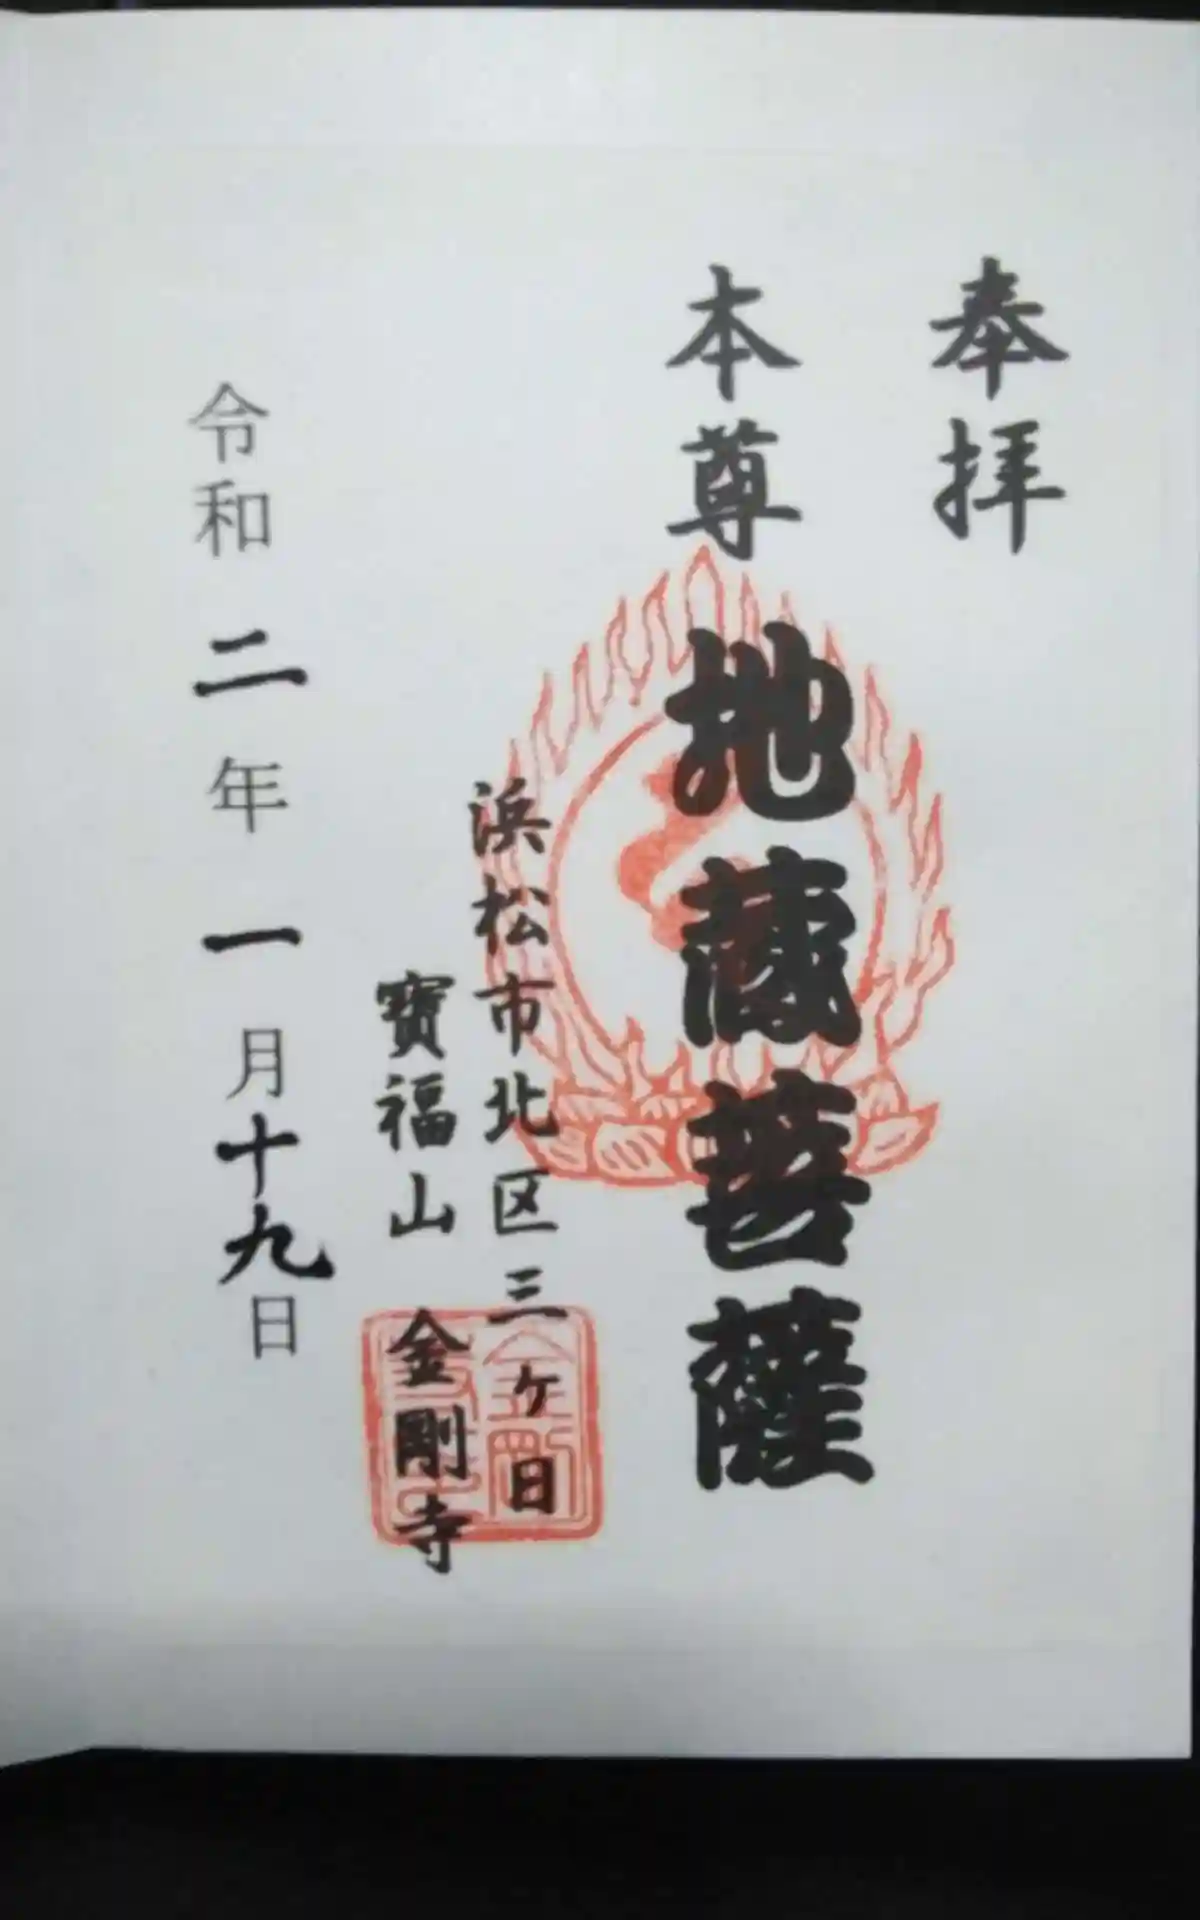 奉拝
本尊
地蔵菩薩
浜松市北区三ケ日
寶福山 金剛寺
令和二年一月十九日